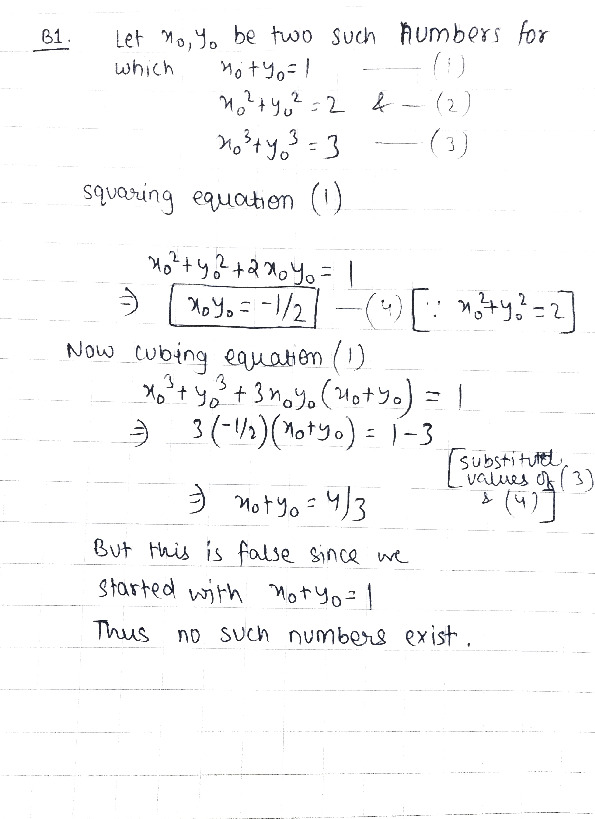 B1. Let x₀, y₀ be two such numbers for
which x₀ + y₀ = 1 —— (1)
x₀² + y₀² = 2 & — (2)
x₀³ + y₀³ = 3 —— (3)
squaring equation (1)
x₀² + y₀² + 2x₀y₀ = 1
⇒ x₀y₀ = -1/2 — (4) [∵ x₀² + y₀² = 2]
Now cubing equation (1)
x₀³ + y₀³ + 3x₀y₀(x₀ + y₀) = 1
⇒ 3(-1/2)(x₀ + y₀) = 1 - 3
[substituted
values of (3)
& (4)]
⇒ x₀ + y₀ = 4/3
But this is false since we
started with x₀ + y₀ = 1
Thus no such numbers exist.